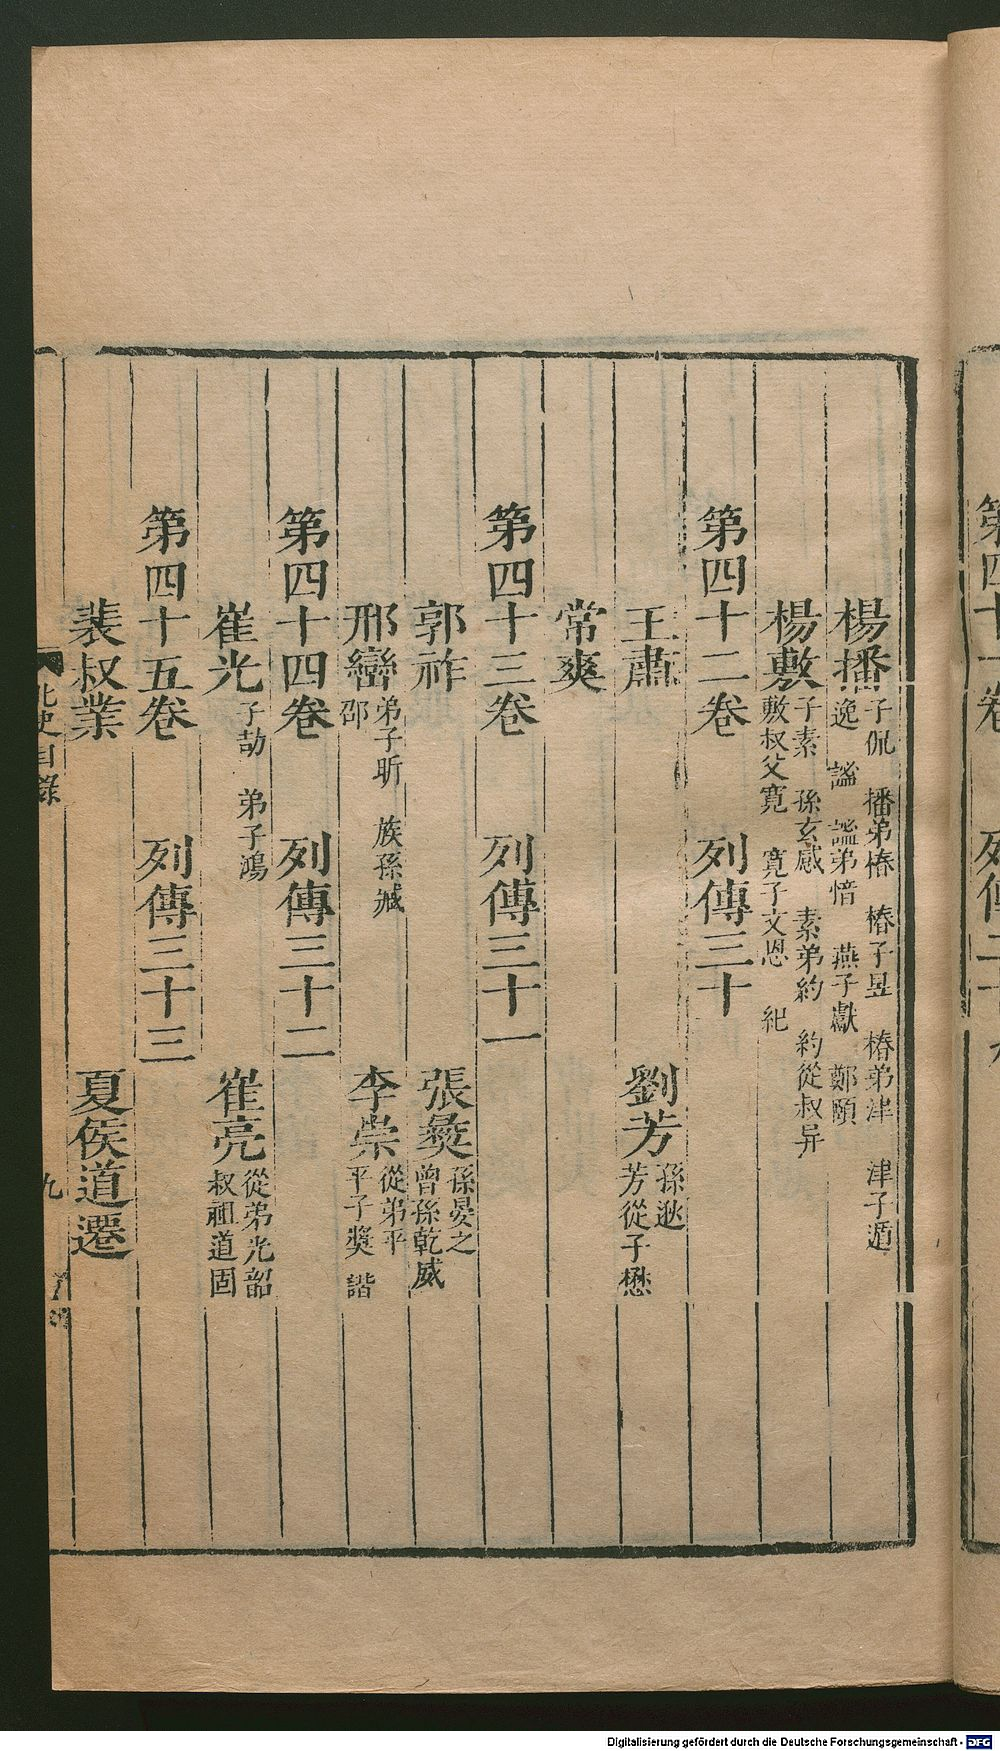 楊播 子侃 播弟椿 椿子昱 椿弟津 津子遁
逸 謐 謐弟愔 燕子獻 鄭頤
楊敷 子素 孫玄感 素弟約 約從叔异
敷叔父寛 寛子文恩 紀
第四十二卷 列傳三十
王肅 劉芳 孫逖
芳從子懋
常爽
第四十三卷 列傳三十一
郭祚 張彝 孫晏之
曾孫乾威
邢巒 弟子昕 族孫臧
邵
李崇 從弟平
平子奬 諧
第四十四卷 列傳三十二
崔光 子劼 弟子鴻
崔亮 從弟光韶
叔祖道固
第四十五卷 列傳三十三
裴叔業 夏侯道遷
北史目錄 九
Digitalisierung gefördert durch die Deutsche Forschungsgemeinschaft - DFG